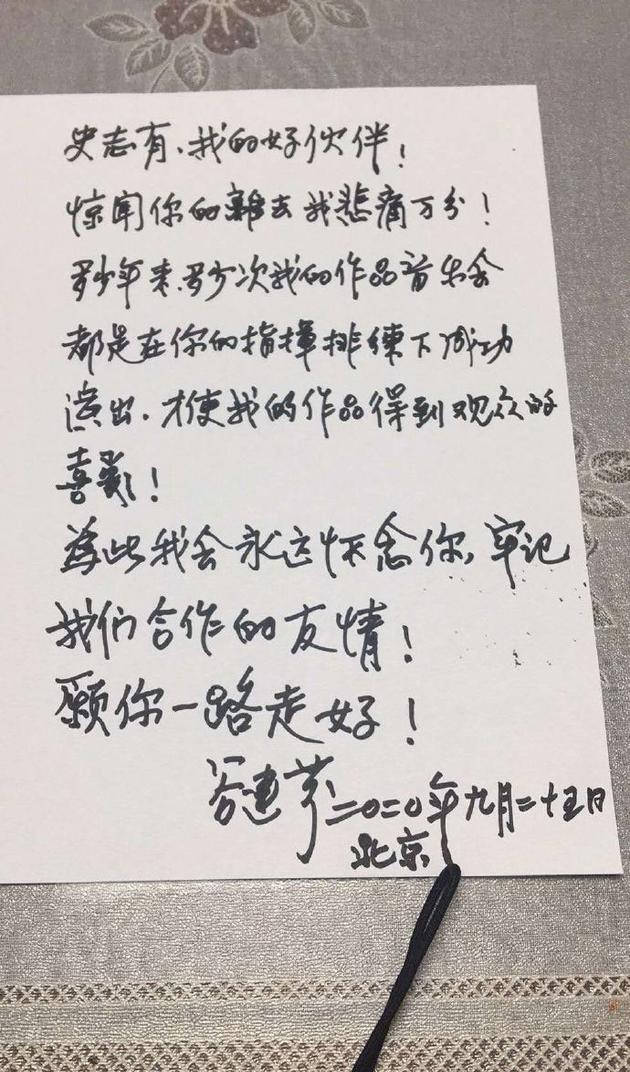 史志有、我的好伙伴！
惊闻你的離去我悲痛万分！
多少年来、多少次我的作品音乐会
都是在你的指揮排練下成功
演出、才使我的作品得到观众的
喜歡！
為此我会永远怀念你、牢记
我们合作的友情！
願你一路走好！
谷建芬 二〇二〇年九月二十五日
北京